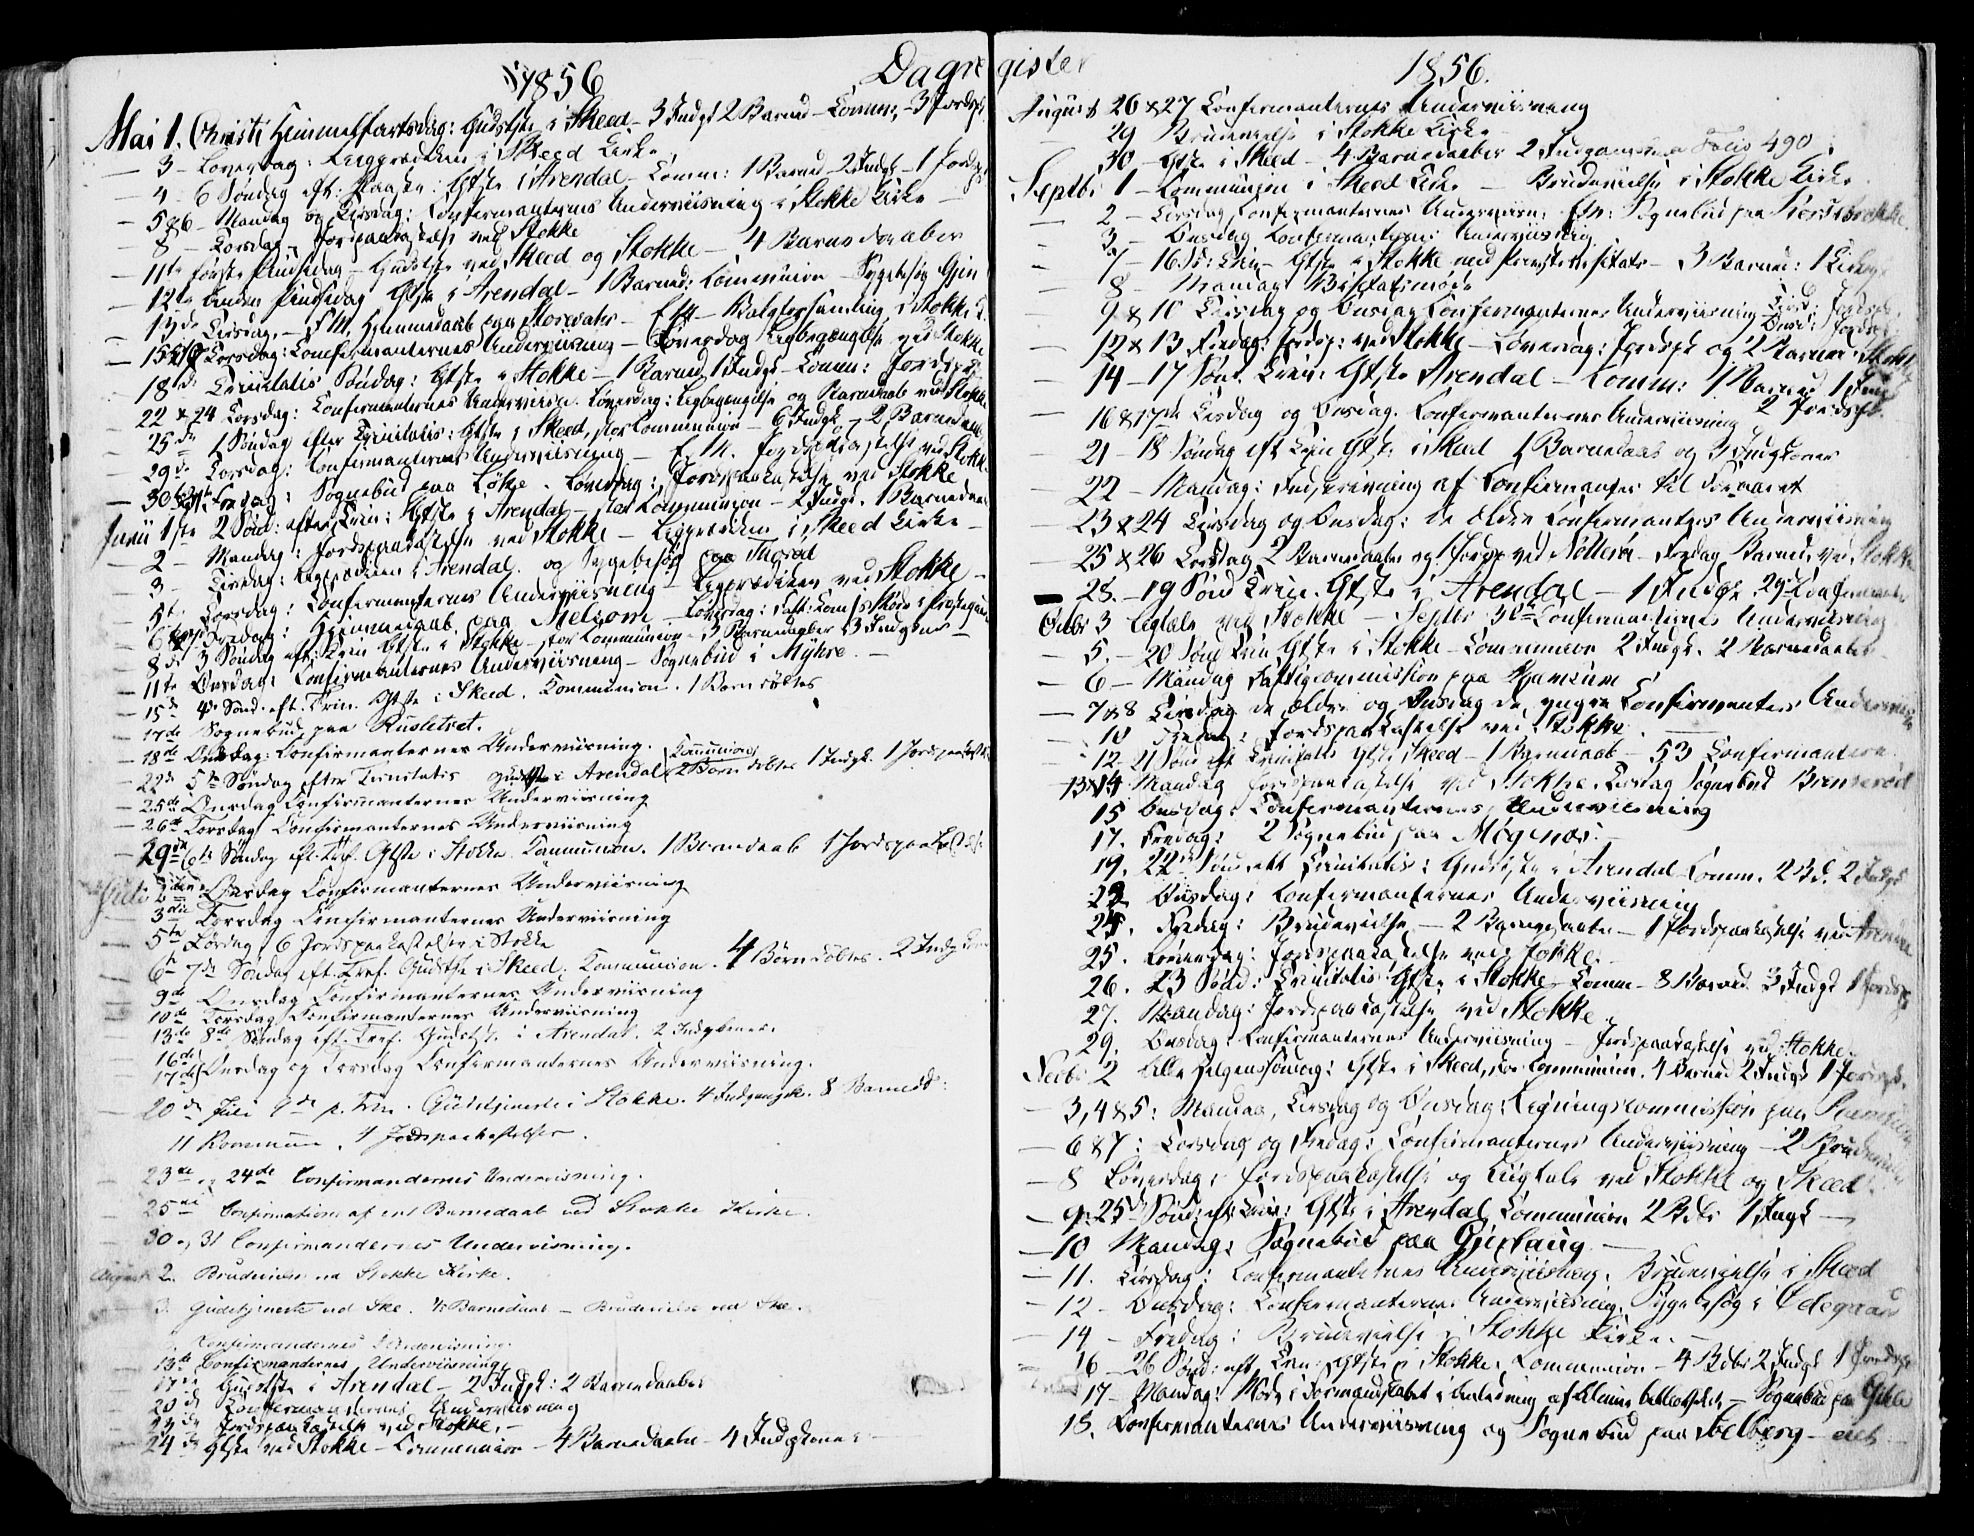 1856
Dagre
Mai 1. Christi Himmelfartsdag: Gudstjte i Skeed - 3 Indgk 2 Barned - Comm: - 3 Jordsp
— 3 - Løverdag: Ligprædiken i Skeed Kirke
— 4 - 6 Søndag eft: Paaske: Gtste i Arendal - Comm: 1 Barned - 2 Indgk - 1 Jordsp
— 5 & 6 - Mandag og Tirsdag: Confirmanternes Underviisning i Stokke Kirke —
8 - Torsdag - Jordpaakastelse ved Stokke
— 11te første Pindsedag - Gudstjte ved Skeed og Stokke - 4 Barnedaaber
— 12te Anden Pindsedag Gtste i Arendal - 1 Barned: Communion - Sygebesøg
— 13de Tirsdag - F.M. Hjemmedaab paa Storevahr - Eft - Valgforsamling i Stokke
— 15 Torsdag: Confirmanternes Underviisning - Løverdag Ligbegængelse ved Stokke
— 18de Trinitatis Søndag: Gtste i Stokke - 1 Barned 1 Indgk - Comm: Jordsp
22 & 24 Torsdag: Confirmanternes Underviisn. Løverdag: Ligbegængelse og Barnedaab ved Stokke
25de 1 Søndag efter Trinitatis: Gtste i Skeed, stor Communion - 6 Indgk - 2 Barned
29de Torsdag: Confirmanternes Underviisning - E.M. Jordpaakastelse ved Stokke
— 30 & 31te Fredag: Sognebud paa Løke. Løverdag: Jordspaakastelse ved Stokke
Junii 1ste 2 Sønd: efter Trin: Gtste i Arendal - stor Communion - 2 Indgk. 1 Barned
— 2 - Mandag: Jordspaakastelse ved Stokke - Ligprædiken i Skeed Kirke —
— 3 - Tirsdag: Ligprædiken i Arendal og Sygebesøg paa Thorød
— 5te Torsdag: Confirmanternes Underviisning - Ligprædiken ved Stokke —
— 6te Fredag: Hjemmedaab paa Melsom - Løverdag: Fatt: Com:s Møde i Præstegaard
— 8de 3 Søndag eft: Trin Gtste i Stokke - stor Communion - 3 Barnedaaber 3 Indgkner
— 11te Onsdag: Confirmanternes Underviisning - Sognebud i Myhre. —
— 15de 4de Sønd. eft. Trin. Gtste i Skeed. Communion. 1 Barn døbtes
— 17de Sognebud paa Rusletvet.
— 18de Onsdag: Confirmanternes Underviisning.
— 22de 5te Søndag efter Trinitatis Gudstje i Arendal Communion 2 Børn døbtes 1 Indgk. 1 Jordspaakast
— 25de Onsdag Confirmanternes Underviisning
— 26de Torsdag Confirmanternes Underviisning
— 29de 6te Søndag eft. Tref. Gtste i Stokke Communion. 1 Barnedaab 1 Jordspaakast
Juli 2den Onsdag Confirmanternes Underviisning
3die Torsdag Confirmanternes Underviisning
5te Lørdag 6 Jordspaakastelser i Stokke
6te 7de Søndag eft. Tref. Gudstje i Skeed. Communion. 4 Børn døbtes. 2 Indgk
9de Onsdag Confirmanternes Underviisning
10de Torsdag Confirmanternes Underviisning
13de 8de Søndag eft. Tref. Gudstje. i Arendal. 2 Indgkner.
16de
17de Onsdag og Torsdag Confirmanternes Underviisning.
20de Juli 9de p. Trin. Gudstjeneste i Stokke. 4 Indgangsk. 8 Barnedd:
11 Kommun. 4 Jordspaakastelser.
23de og 24de Confirmandernes Undervisning.
25de Confirmation af et Barnedaab ved Stokke Kirke.
30 og 31 Confirmandernes Undervisning.
August 2. Brudevielse ved Stokke Kirke.
3. Gudstjeneste ved Ske. Barnedaab - Brudevielse ved Ske.
Confirmandernes Undervisning.
13de Confirmandernes Underviisning
17de Gudstste i Arendal - 2 Indgk: 2 Barnedaaber
20de Confirmanternes Underviisning
Jordspaakastelse ved Stokke. —
24de Gtste ved Stokke - Communion - 4 Barnedaaber - 4 Indgkoner
gister
1856.
August 26 & 27 Confirmanternes Underviisning
29 Brudevielse i Stokke Kirke —
30 - Gtste i Skeed - 4 Barnedaaber 2 Folio 490
Septbr 1 - Communion i Skeed Kirke - Brudevielse i Stokke Kirke
— 2 - Tirsdag Confirmanternes Underviisn: Eftr: Sognebud paa
— 3 - Onsdag Confirmanternes Underviisning
— 7 - 16 Sø: Trin - Gtste i Stokke med Provstevisitats - 3 Barned: 1
— 8 - Mandag
— 9 & 10 Tirsdag og Onsdag Confirmanternes Underviisning Tirsd: Jordsp. Onsd: Jordsp
— 12 & 13 Fredag: Jordsp: ved Stokke - Løverdag: Jordspk og 2 Barned: Stokke
— 14 - 17 Sønd Trin: Gtste Arendal - Comm: 1 Barned 1 Indg 2 Jordspk.
16 & 17de Tirsdag og Onsdag. Confirmanternes Underviisning
21 - 18 Søndag eft Trin Gtste i Skeed 1 Barnedaab og 3 Indgkoner
22 - Mandag: Indskrivning af Confirmanter til Foraaret
— 23 & 24 Tirsdag og Onsdag: de ældre Confirmanters Underviisning
— 25 & 26 Torsdag 2 Barnedaaber og 1 Jordsp ved Nötterö - Fredag Barned. ved Stokke
— 28. - 19 Sønd Trin. Gtste i Arendal - 1 Indgk 29 Confirmanter
Octbr 3 Ligtale ved Stokke - Septbr 30te Confirmanternes Underviisning
— 5. - 20 Sønd Trin Gtste i Stokke - Communion 2 Indgk. 2 Barnedaaber
— 6 - Mandag Fattigcommission paa
— 7 & 8 Tirsdag de ældre og Onsdag de yngre Confirmanters Underviisn
— 10 Fredag: Jordspaakastelse ved Stokke.
12 - 21 Sønd eft Trinitatis Gtste Skeed - 1 Barnedaab - 53 Confirmanter
13 & 14 Mandag Jordspaakastelse ved Stokke. Tirsdag Sognebud Brunserød
15 Onsdag: Confirmanternes Underviisning
17. Fredag: 2 Sognebud paa Møgenæs. —
19. 22de Sønd eft Trinitatis: Gudstjte i Arendal Comm. 2 Bd. 2 Indgk
22 Onsdag: Confirmanternes Underviisning
24. Fredag: Brudevielse - 2 Barnedaaber - 1 Jordspaakastelse ved Arendal
25. Løverdag: Jordspaakastelse ved Stokke. —
26. 23 Sønd: Trinitatis Gtste i Stokke - Comm - 8 Barned. 3 Indgk 1 Jordsp
27. Mandag: Jordspaakastelse ved Stokke
29. Onsdag: Confirmanternes Underviisning - Jordspaakastelse ved Stokke
Novbr 2 Alle Helgenssøndag: Gtste i Skeed, stor Communion. 4 Barned 2 Indgk 1 Jordsp.
— 3, 4 & 5: Mandag, Tirsdag og Onsdag: Ligningscommission paa
— 6 & 7: Torsdag og Fredag: Confirmanternes Underviisning - 2 Brudevielser
— 8 Løverdag: Jordspaakastelse og Ligtale ved Stokke og Skeed.
— 9. 25de Sønd: eft Trin: Gtste i Arendal Communion 2 Bdbr 1 Ingk —
— 10 Mandag: Sognebud paa Gjerlaug —
— 11. Tirsdag: Confirmanternes Underviisning. Brudevielse i Skeed
— 12 - Onsdag: Confirmanternes Underviisning. Sygebesøg i Ødegaard
— 14 - Fredag: Brudevielse i Stokke Kirke. —
— 16 - 26 Sønd: eft Trin: Gtste i Stokke. Communion - 4 Bdbr 2 Indgk 1 Jordsp
— 17 - Mandag: Møde i Formandskabet i Anledning af - Sognebud paa
— 18. Confirmanternes Underviisning og Sognebud paa Solberg —